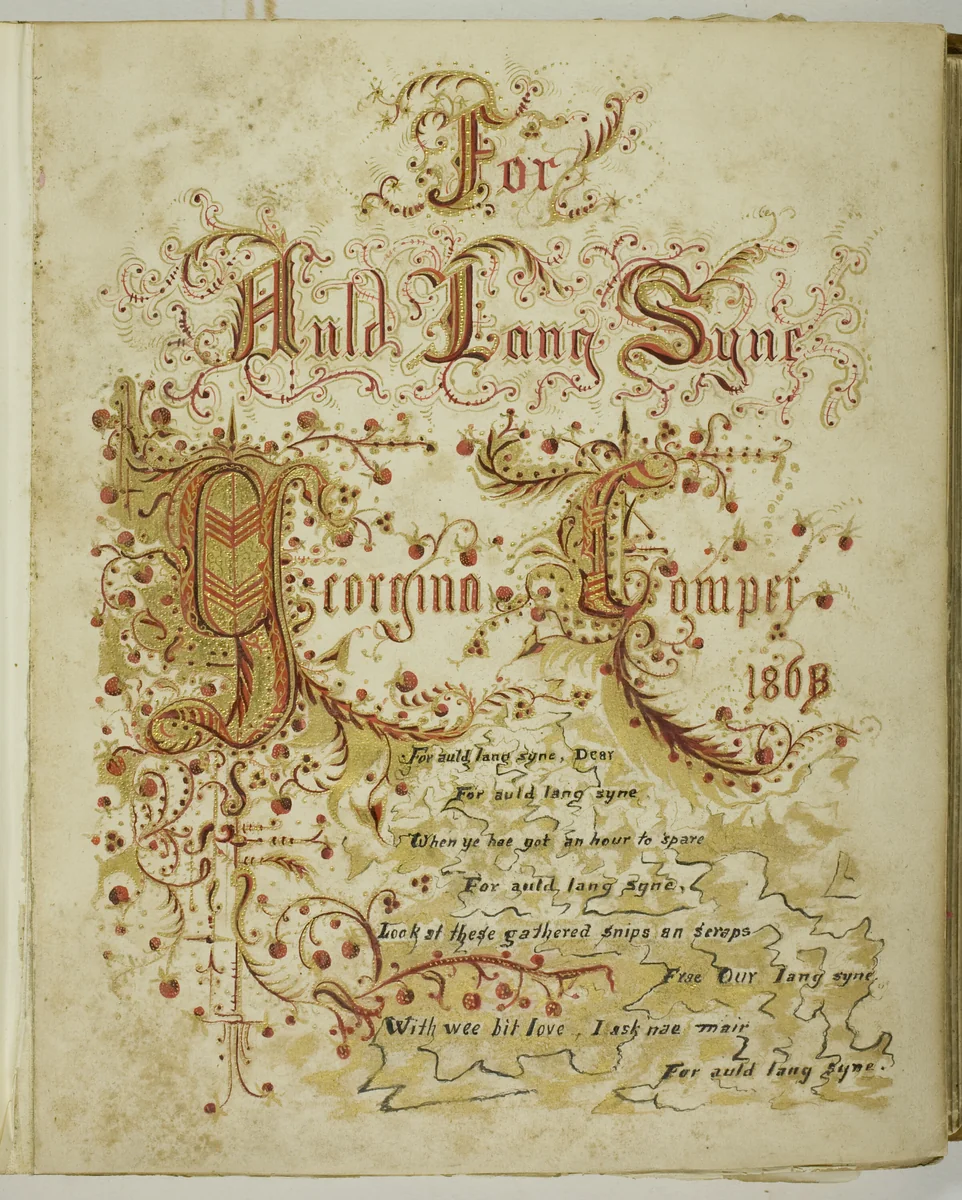 For
Auld Lang Syne
Georgina Comper
186
For auld lang syne, Dear
For auld lang syne
When ye hae got an hour to spare
For auld lang syne,
Look at these gathered snips an scraps
Frae Our lang syne
With wee bit love, I ask nae mair
For auld lang syne.